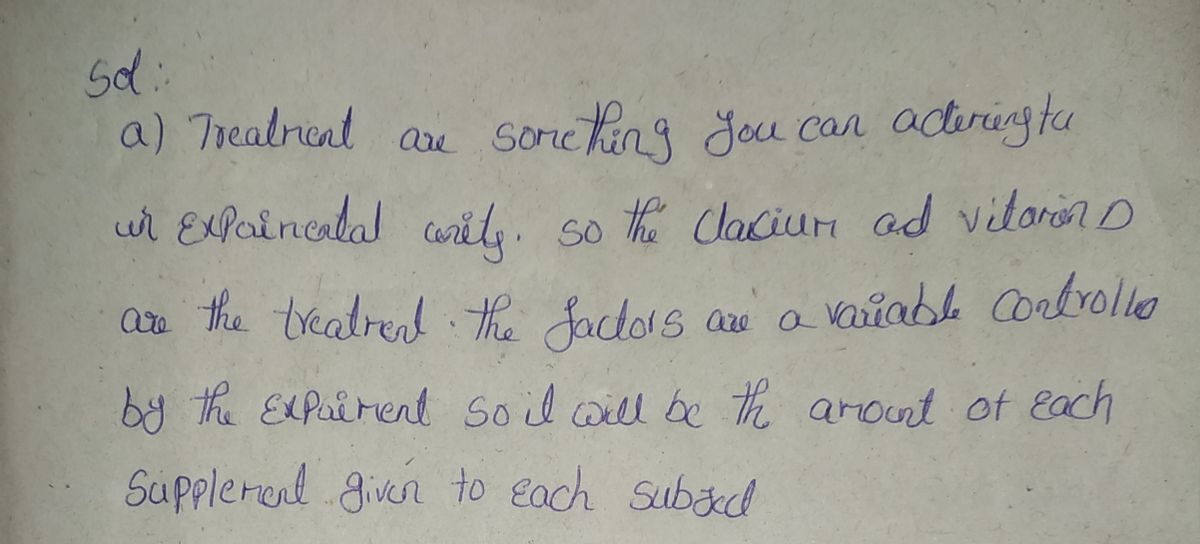 Sol:
a) Treatment are something you can
in Expairmental units. so the Clacium ad vitamin D
are the treatment. the factors are a variable Controlle
by the Expairment so it will be th amount of each
Supplement given to each subject